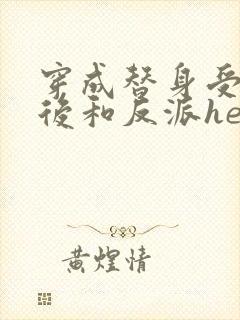 穿成替身受
後和反派he
黄煌情